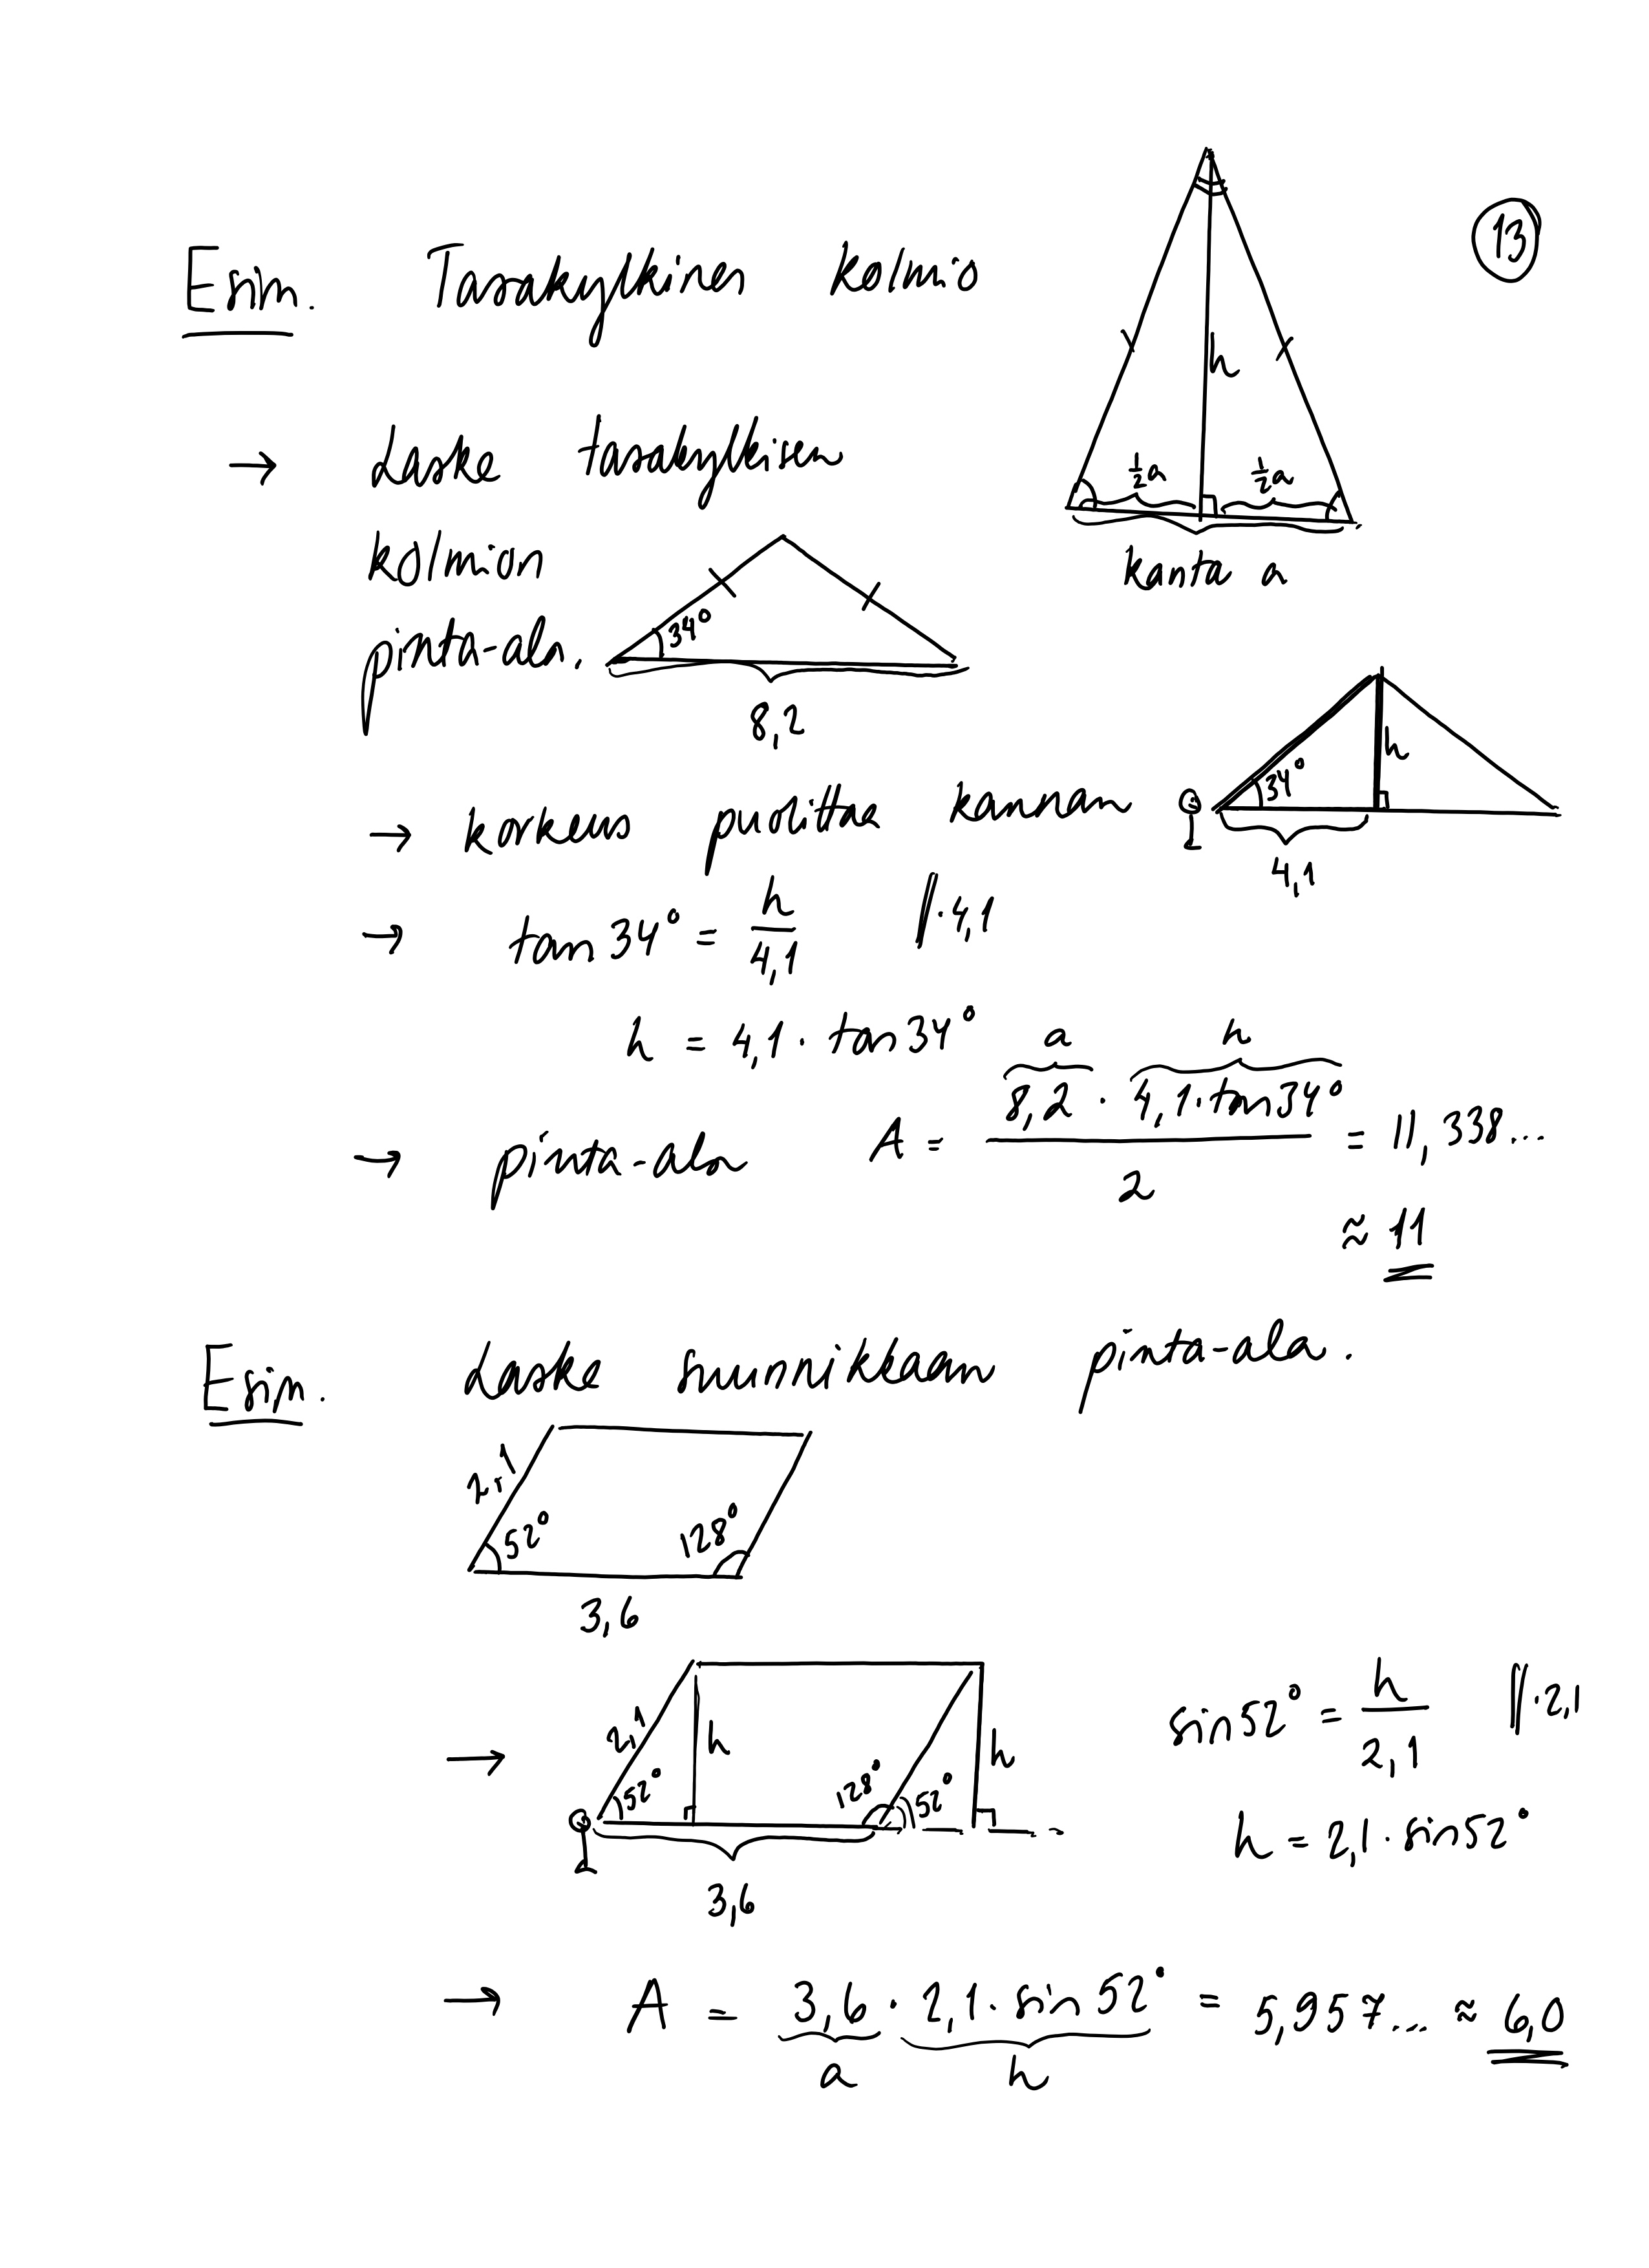 13
Esim. Tasakylkinen kolmio
h
½a ½a
kanta a
→ Laske tasakylkisen
kolmion
pinta-ala.
34°
8,2
h
34°
4,1
→ korkeus puolittaa kannan
→ tan 34° = h/4,1 ‖ · 4,1
h = 4,1 · tan 34°
a h
→ pinta-ala A = (8,2 · 4,1 · tan 34°)/2 = 11,338...
≈ 11
Esim. Laske suunnikkaan pinta-ala.
2,1
52° 128°
3,6
→ 2,1 h h
52° 128° 52°
3,6
sin 52° = h/2,1 ‖ · 2,1
h = 2,1 · sin 52°
→ A = 3,6 · 2,1 · sin 52° = 5,957... ≈ 6,0
a h